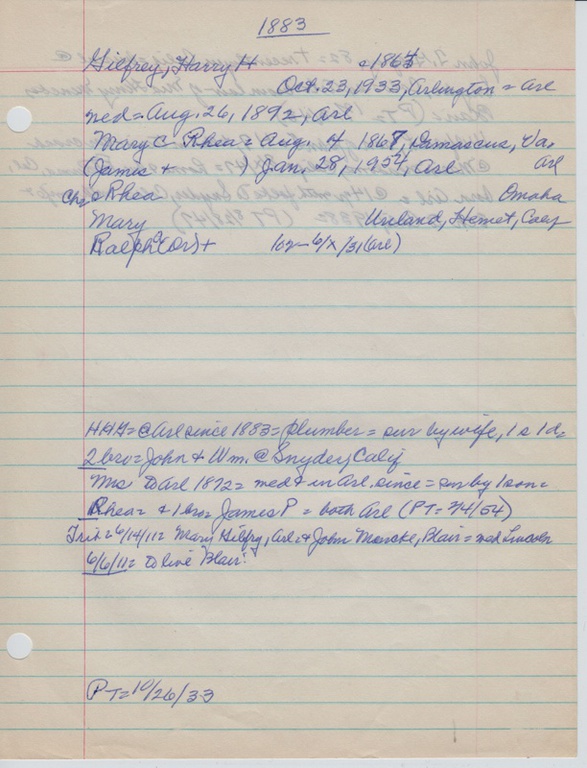 1883
Gilfrey, Harry H = 1864
Oct. 23, 1933, Arlington = Arl
med = Aug. 26, 1892, Arl
Mary C Rhea = Aug. 4 1867, Damascus, Va.
(James + ) Jan. 28, 1954, Arl Arl
Ch = Rhea Omaha
Mary Unland, Hemet, Calif
Ralph (or) + 6/x/31 (Arl)
HHG = @ Arl since 1883 = plumber = sur by wife, 1 s 1 d =
2 bro = John & Wm. @ Snyder, Calif
Mrs to Arl 1872 = med & in Arl. since = sur by 1 son =
Rhea = & 1 bro = James P = both Arl (PT = 2/4/54)
Trib = 6/14/11 = Mary Gilfry, Arl = & John Menske, Blair = med Lincoln
6/6/11 = to live "Blair"
PT = 10/26/33